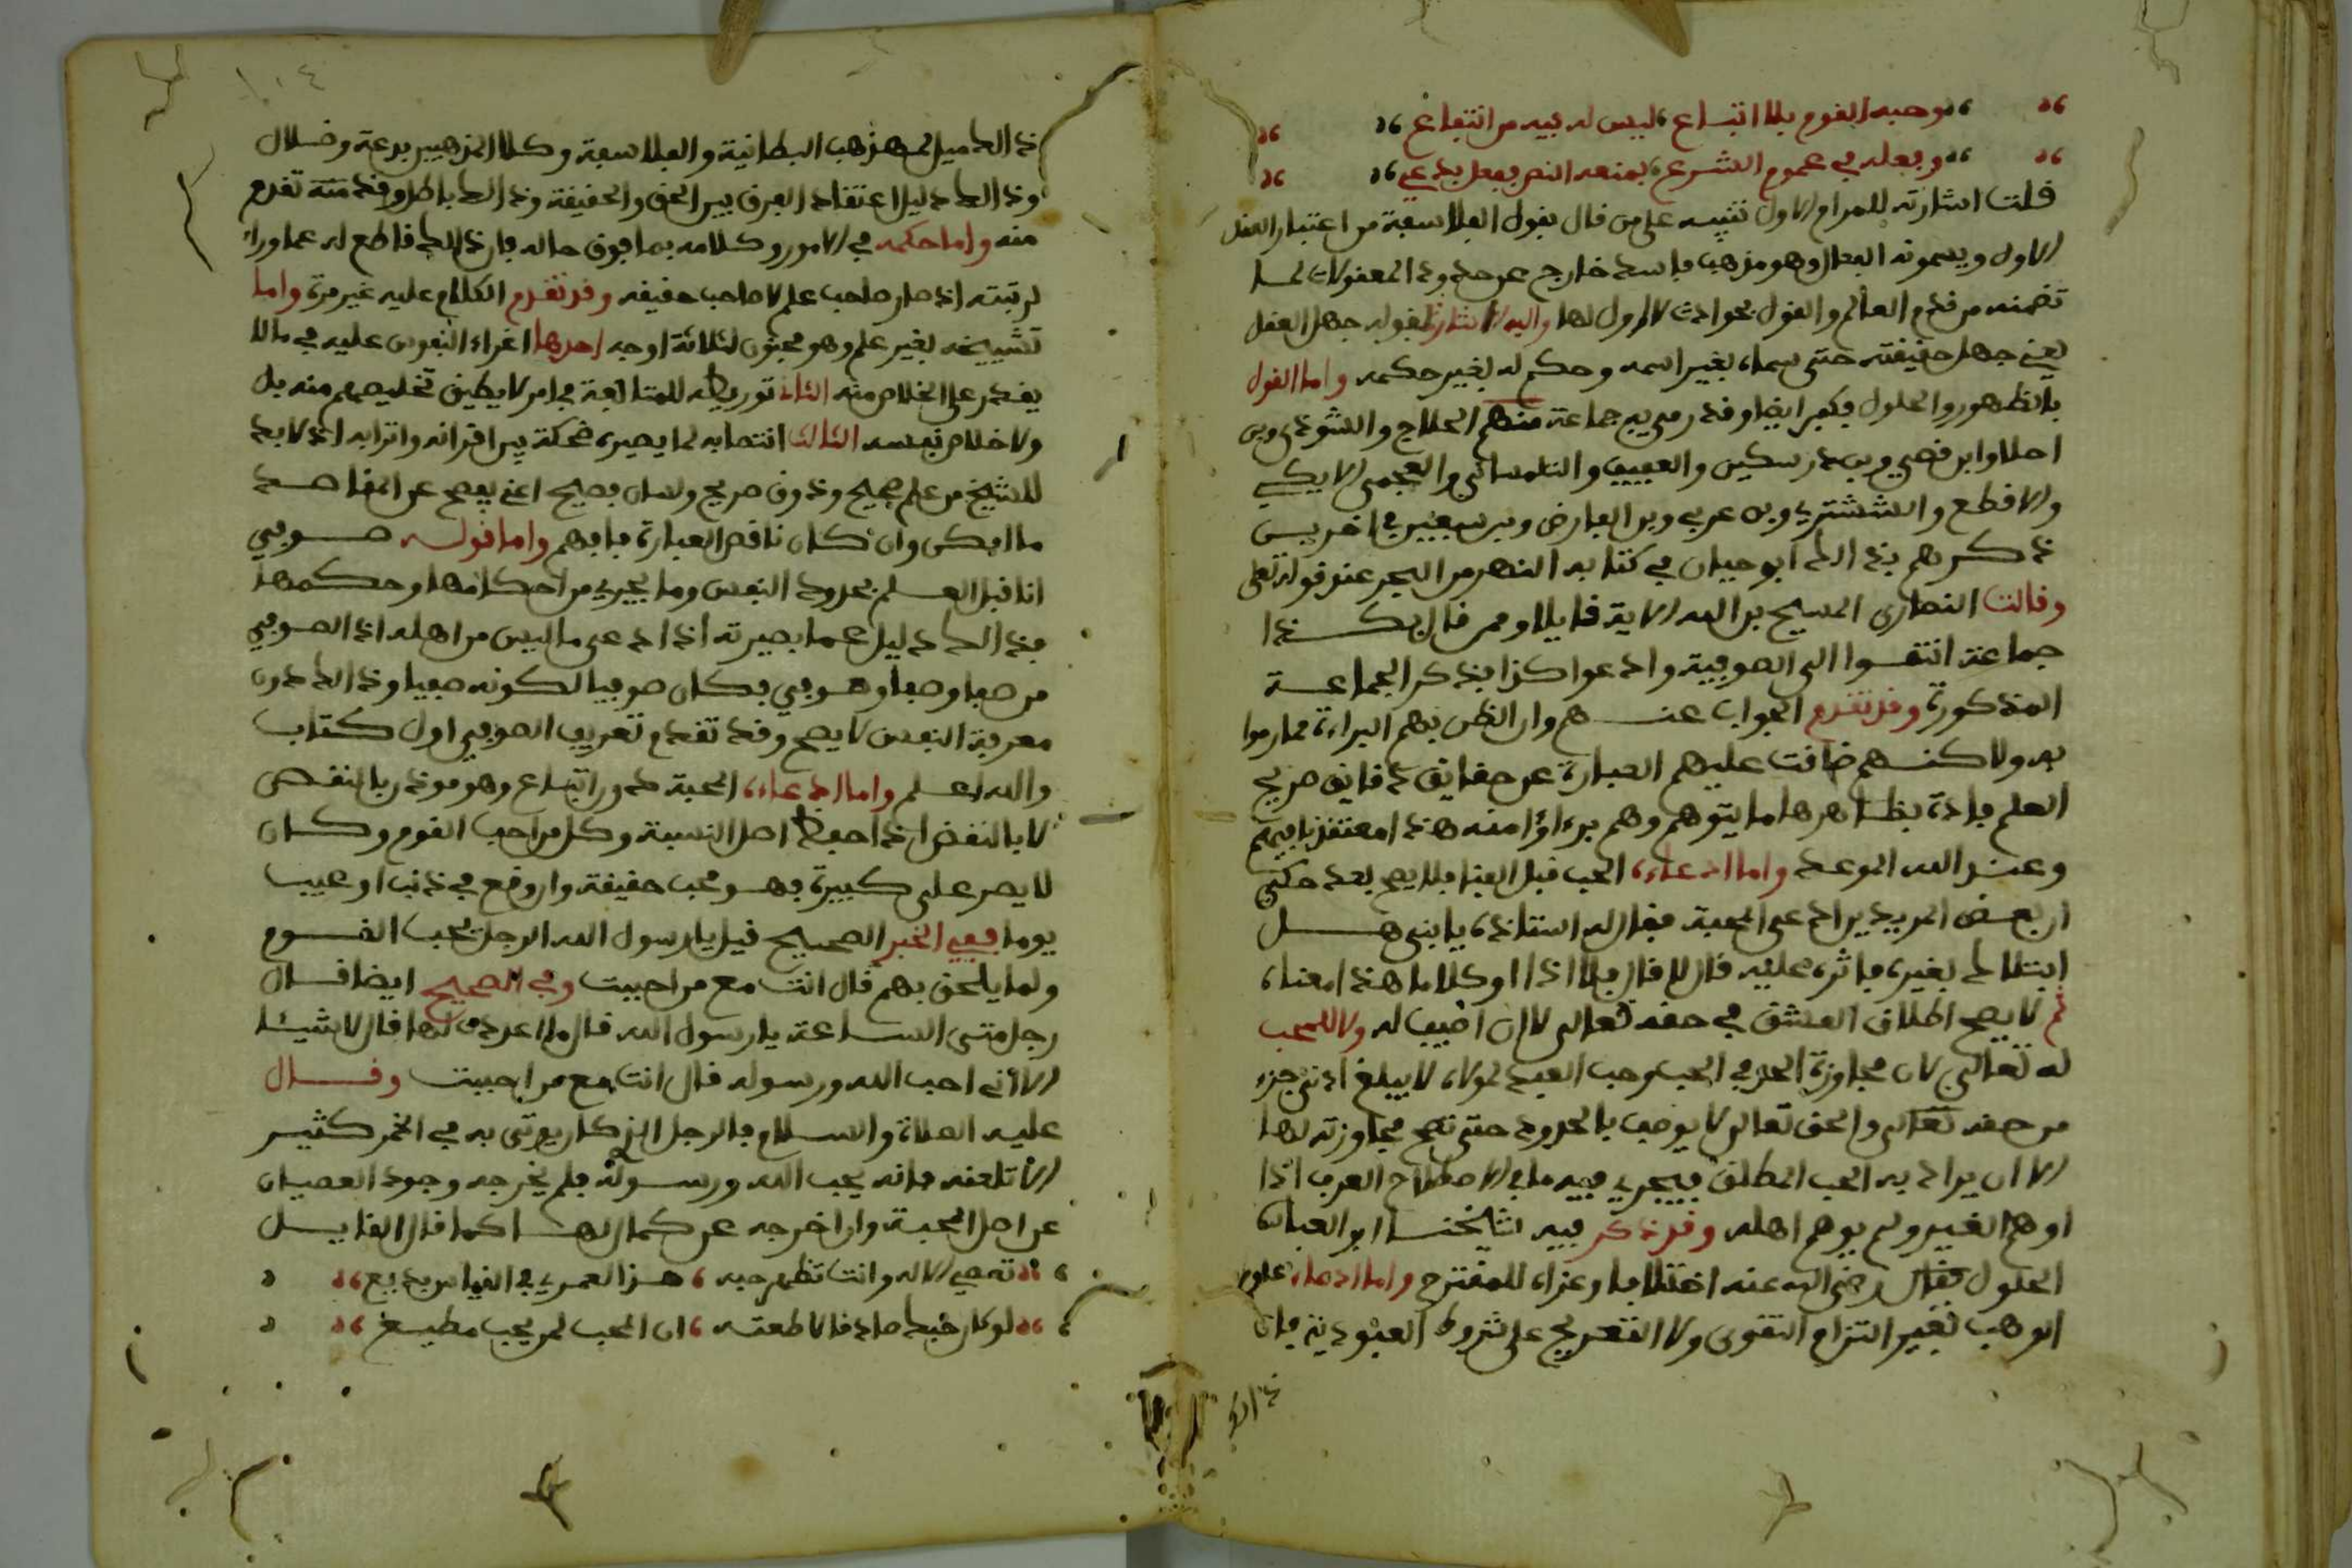 وحبه القوم بلا اتباع ليس له فيه من انتفاع
وفعله في عموم الشرع بمنعه النص بفعل بدعي
قلت اشارته للمرام الاول تنبيه على من قال بقول الفلاسفة من اعتبار العقل
الاول ويسمونه الفعال وهو مذهب فاسد خارج عن حدود المعقولات لما
تضمنه من قدم العالم والقول بحوادث لا اول لها واليه الاشارة بقوله جهل العقل
يعني جهل حقيقته حتى سماه بغير اسمه وحكم له بغير حكمه واما القول
بالظهور والحلول فكفر ايضا وقد رمي به جماعة منهم الحلاج والشوذي وبن
احلا وابن قصي وبن درسكين والعفيف والتلمساني والعجمي الايكي
والاقطع والششتري وبن عربي وبن الفارض وبن سبعين في اخرين
ذكرهم بذالك ابو حيان في كتابه النهر من البحر عند قوله تعلى
وقالت النصارى المسيح بن الله الاية قايلا وممن قال بكذا
جماعة انتسوا الى الصوفية وادعوا كذا بذكر الجماعة
المذكورة وقد تقدم الجواب عنهم وان الظن بهم البراءة مما رموا
به ولاكنهم ضاقت عليهم العبارة عن حقايق دقايق صريح
العلم فادة بظاهرها ما يتوهم وهم برءاؤا منه هذا معتقدنا فيهم
وعند الله الموعد واما ادعاء الحب قبل الفنا فلا يصح بعد حكي
ان بعض المريدين ادعى المحبة فقال له استاذه يا بني هل
ابتلاك بغيره فاثره عليه قال لا قال فلا اذا او كلاما هذا معناه
ثم لا يصح اطلاق العشق في حقه تعالى لا ان اضيف له ولا للمحب
له تعالى لان مجاوزة الحد في الحب وحب العبد لمولاه لا يبلغ ادنى جزء
من حقه تعالى والحق تعالى لا يوصف بالحدود حتى تصح مجاوزته لها
الا ان يراد به الحب المطلق فيجري فيه ما في الاصطلاح العرب اذا
اوهم الغير ولم يوهم اهله وقد ذكر فيه شيخنا ابو العباس
الحلول فقال رضي الله عنه اختلافا وعزاه للمقترح واما ادعاء علوم
الوهب بغير التزام التقوى ولا التعريج على شروط العبودية فان
ذالك
ذالك ميل لمذهب البطانية والفلاسفة وكلا المذهبين بدعة وضلال
وذالك دليل اعتقاد الفرق بين الحق والحقيقة وذالك باطل وقد منه تقدم
منه واما حكمه في الامور وكلامه بما فوق حاله فان ذالك قاطع له عما وراء
لرتبته اذ صار صاحب علم لا صاحب حقيقه وقد تقدم الكلام عليه غير مرة واما
تشييخه بغير علم وهو مجنون لثلاثة اوجه احدها اغراء النفوس عليه في ما لا
يقدر على الخلاص منه الثاني توريطه للمتابعة في امر لا يطيق تخليصهم منه بل
ولا خلاص نفسه الثالث انتصابه لما يصيره ضحكة بين اقرانه واترابه اذ لا بد
للشيخ من علم صحيح وذوق صريح ولسان فصيح اعني يفصح عن المقاصد
ما امكن وان كان ناقص العبارة فافهم واما قوله صوفي
انا قبل العلم بحدود النفس وما يجري من احكامها وحكمها
فذالك دليل عما بصيرته اذ ادعى ما ليس من اهله اذ الصوفي
من صفا وصفا وصوفي فكان صوفيا لكونه صفيا وذالك دون
معرفة النفس لا يصح وقد تقدم تعريف الصوفي اول كتاب
والله اعلم واما ادعاء المحبة دون اتباع وهو موذن بالنقص
لا بالنقض اذ احفظ اصل النسبة وكل من احب القوم وكان
لا يصر على كبيرة فهو محب حقيقة وان وقع في ذنب او عيب
يوما ففي الخبر الصحيح قيل يا رسول الله الرجل يحب القوم
ولما يلحق بهم قال انت مع من احببت وفي الصحيح ايضا قال
رجل متى الساعة يا رسول الله قال ما اعددت لها قال لا شيئا
الا اني احب الله ورسوله قال انت مع من احببت وقال
عليه الصلاة والسلام في الرجل الذي كان يوتى به في الخمر كثير
الا تلعنه فانه يحب الله ورسوله فلم يخرجه وجود العصيان
عن اصل المحبة وان اخرجه عن كمالها كما قال القايل
تعصي الاله وانت تظهر حبه هذا لعمري في القياس بديع
لو كان حبك صادقا لاطعته ان المحب لمن يحب مطيع